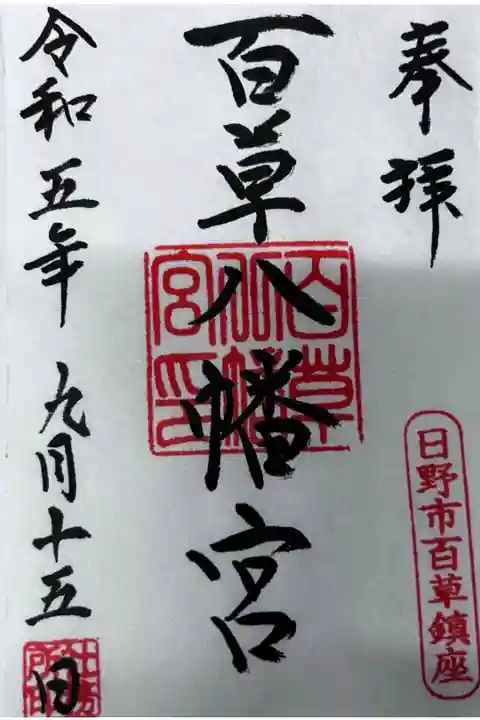 奉拝
日野市百草鎮座
百草八幡宮
百草八幡宮印
令和五年 九月十五日
社務所印